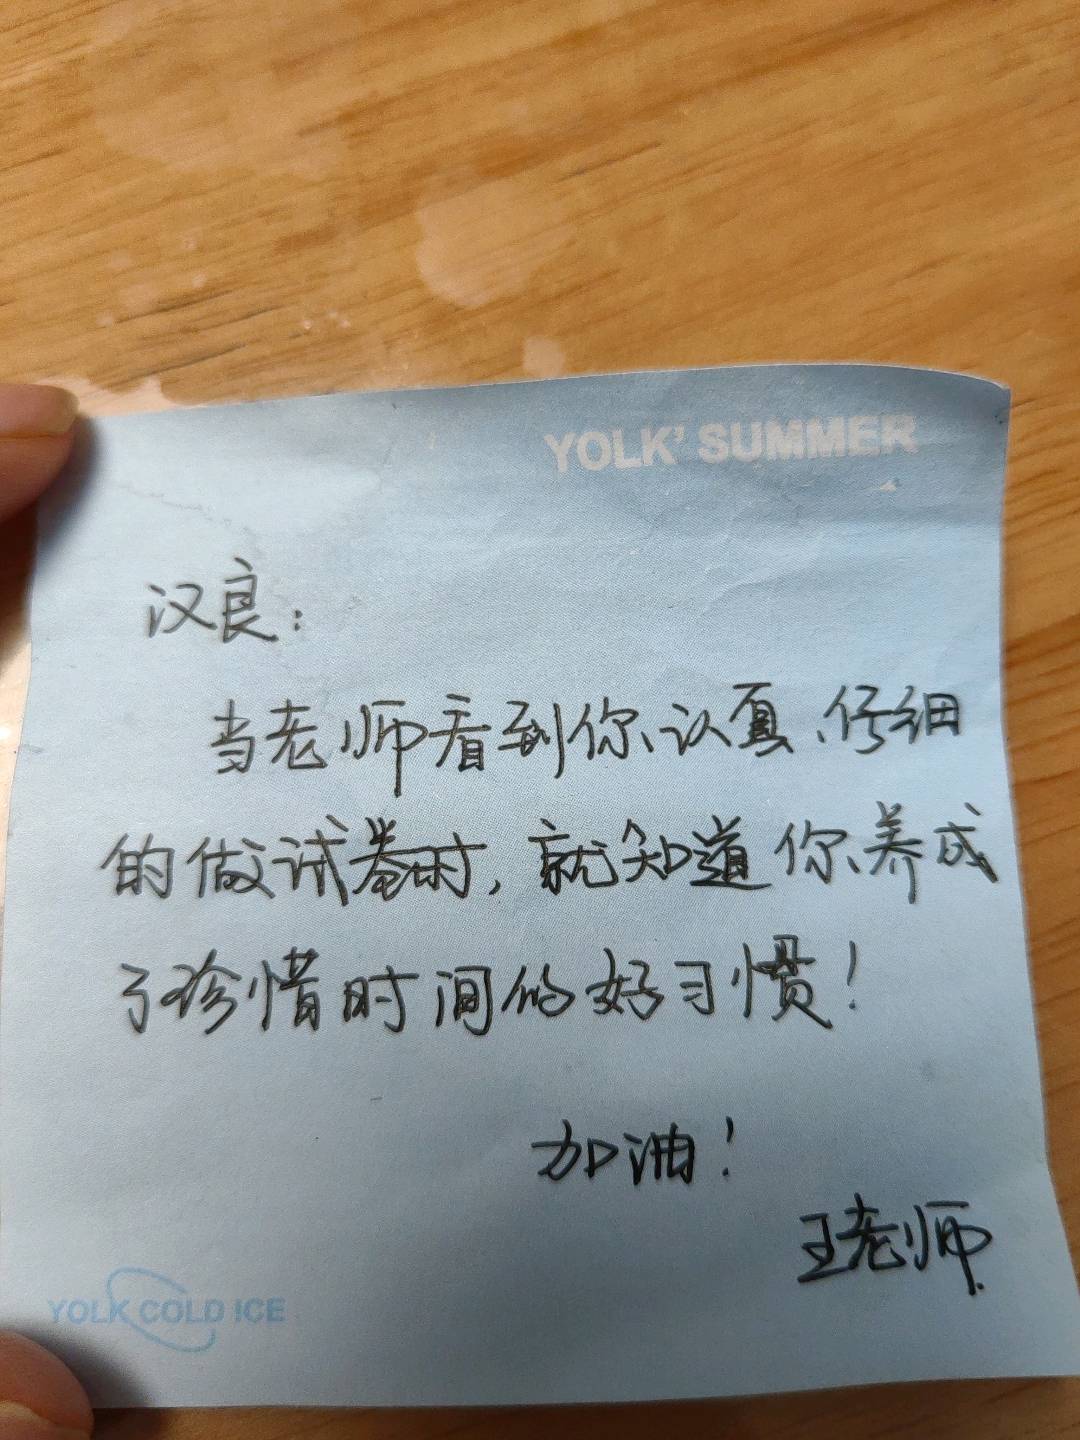 YOLK' SUMMER
汉良：
当老师看到你认真、仔细
的做试卷时，就知道你养成
了珍惜时间的好习惯！
加油！
王老师
YOLK COLD ICE